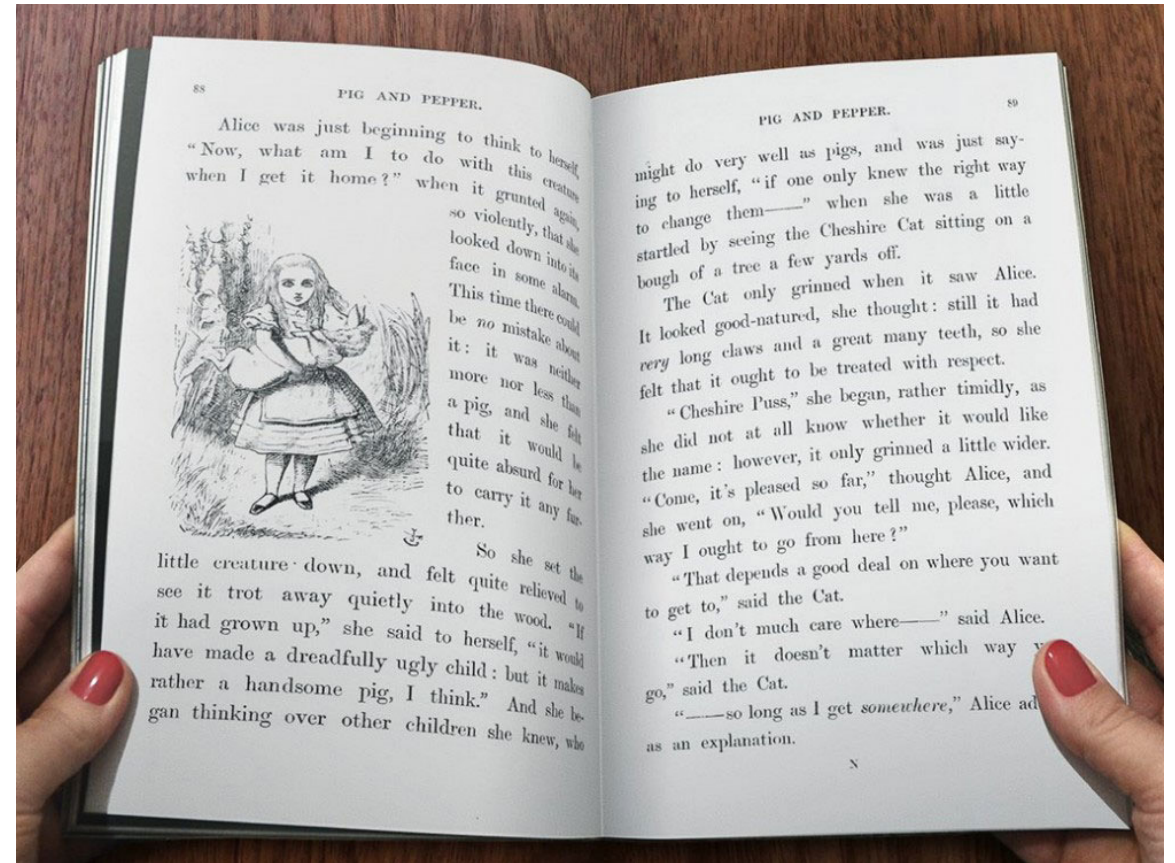 88
PIG AND PEPPER.
Alice was just beginning to think to herself,
“Now, what am I to do with this creature
when I get it home?” when it grunted again,
so violently, that she
looked down into its
face in some alarm.
This time there could
be no mistake about
it: it was neither
more nor less than
a pig, and she felt
that it would be
quite absurd for her
to carry it any fur-
ther.
So she set the
little creature down, and felt quite relieved to
see it trot away quietly into the wood. “If
it had grown up,” she said to herself, “it would
have made a dreadfully ugly child: but it makes
rather a handsome pig, I think.” And she be-
gan thinking over other children she knew, who
PIG AND PEPPER.
89
might do very well as pigs, and was just say-
ing to herself, “if one only knew the right way
to change them——” when she was a little
startled by seeing the Cheshire Cat sitting on a
bough of a tree a few yards off.
The Cat only grinned when it saw Alice.
It looked good-natured, she thought: still it had
very long claws and a great many teeth, so she
felt that it ought to be treated with respect.
“Cheshire Puss,” she began, rather timidly, as
she did not at all know whether it would like
the name: however, it only grinned a little wider.
“Come, it’s pleased so far,” thought Alice, and
she went on, “Would you tell me, please, which
way I ought to go from here?”
“That depends a good deal on where you want
to get to,” said the Cat.
“I don’t much care where——” said Alice.
“Then it doesn’t matter which way
go,” said the Cat.
“——so long as I get somewhere,” Alice
as an explanation.
N